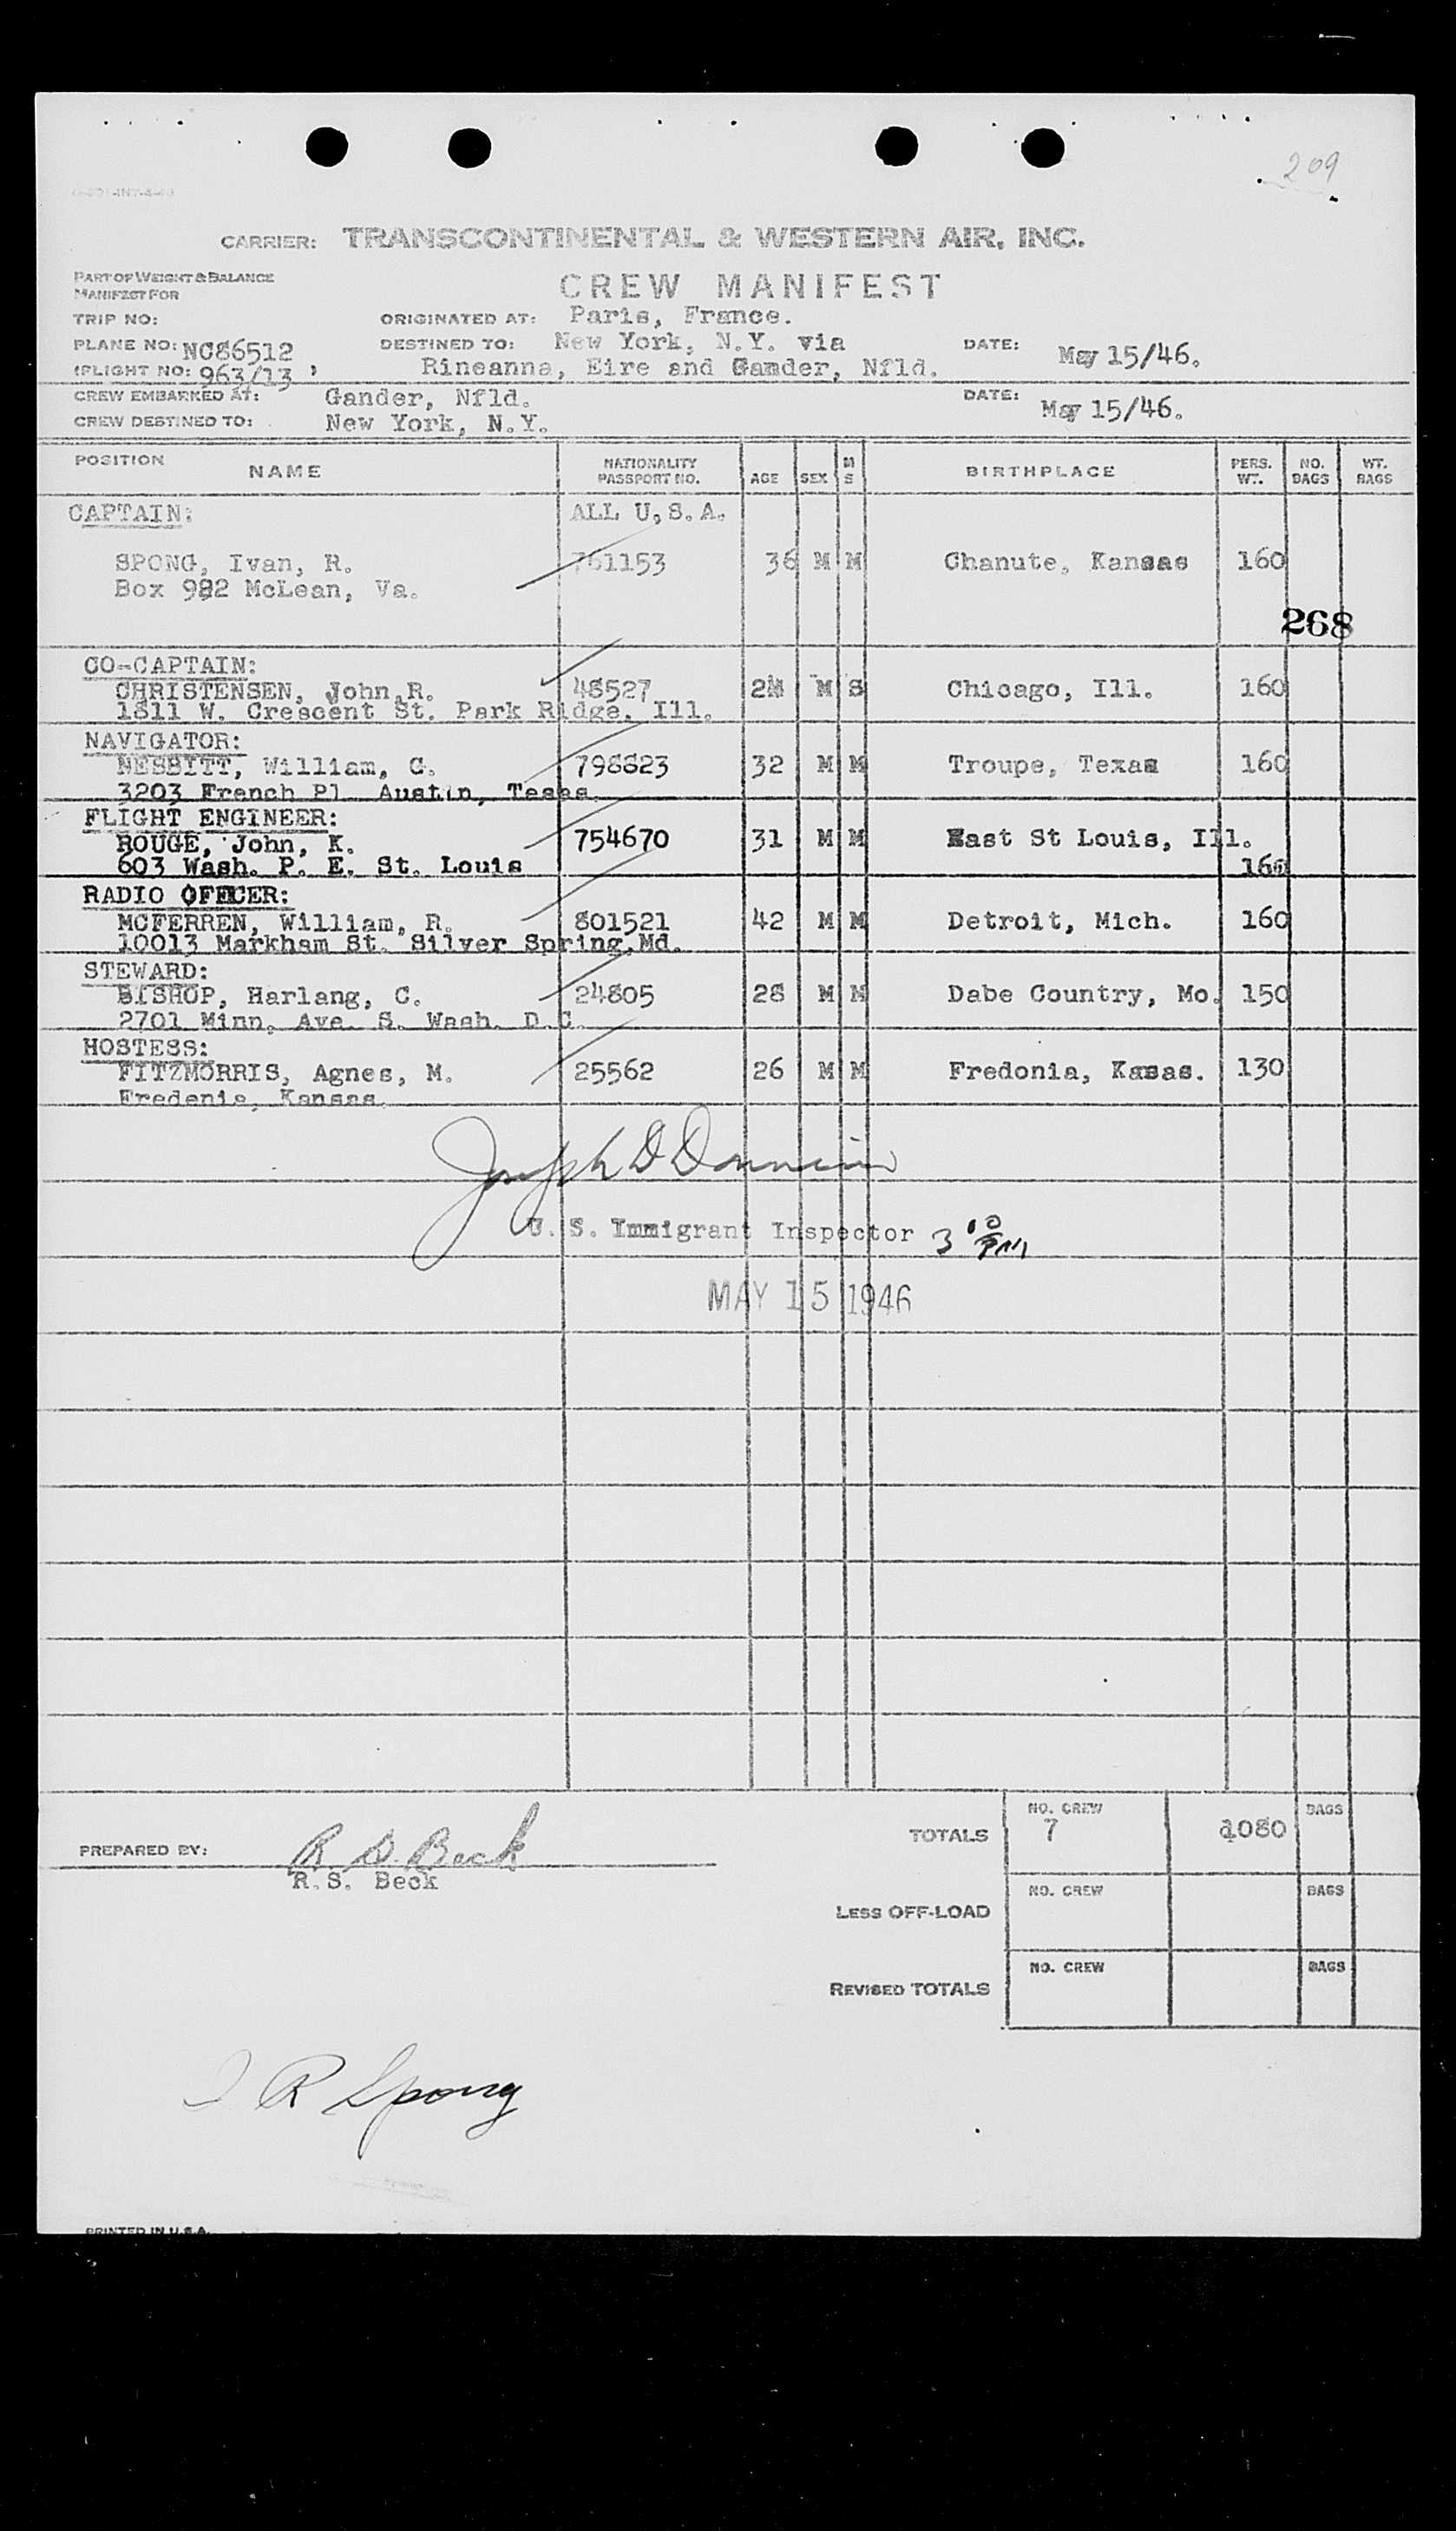 209
CARRIER: TRANSCONTINENTAL & WESTERN AIR, INC.
PART OF WEIGHT & BALANCE
MANIFEST FOR
CREW MANIFEST
TRIP NO: ORIGINATED AT: Paris, France.
PLANE NO: NC86512 DESTINED TO: New York, N.Y. via DATE: May 15/46.
(FLIGHT NO: 963/13 , Rineanna, Eire and Gander, Nfld.
CREW EMBARKED AT: Gander, Nfld. DATE: May 15/46.
CREW DESTINED TO: New York, N.Y.
POSITION NAME NATIONALITY PASSPORT NO. AGE SEX M S BIRTHPLACE PERS. WT. NO. BAGS WT. BAGS
CAPTAIN: ALL U.S.A.
SPONG, Ivan, R. 761153 36 M M Chanute, Kansas 160
Box 982 McLean, Va.
268
CO-CAPTAIN:
CHRISTENSEN, John,R. 48527 M S Chicago, Ill. 160
1811 W. Crescent St. Park Ridge, Ill.
NAVIGATOR:
NESBITT, William, C. 798823 32 M M Troupe, Texas 160
3203 French Pl. Austin, Texas
FLIGHT ENGINEER:
ROUGE, John, K. 754670 31 M M East St Louis, Ill.
603 Wash. P. E. St. Louis 160
RADIO OFFICER:
MCFERREN, William, R. 801521 42 M M Detroit, Mich. 160
10013 Markham St. Silver Spring,Md.
STEWARD:
BISHOP, Harlang, C. 24805 28 M M Dabe Country, Mo. 150
2701 Minn. Ave. S. Wash. D.C.
HOSTESS:
FITZMORRIS, Agnes, M. 25562 26 M M Fredonia, Kasas. 130
Fredenia, Kansas.
Joseph D
U. S. Immigrant Inspector 3 10 PM
MAY 15 1946
PREPARED BY: R S. Beck TOTALS NO. CREW 7 1080 BAGS
R.S. Beck
LESS OFF-LOAD NO. CREW BAGS
REVISED TOTALS NO. CREW BAGS
I R Spong
PRINTED IN U.S.A.